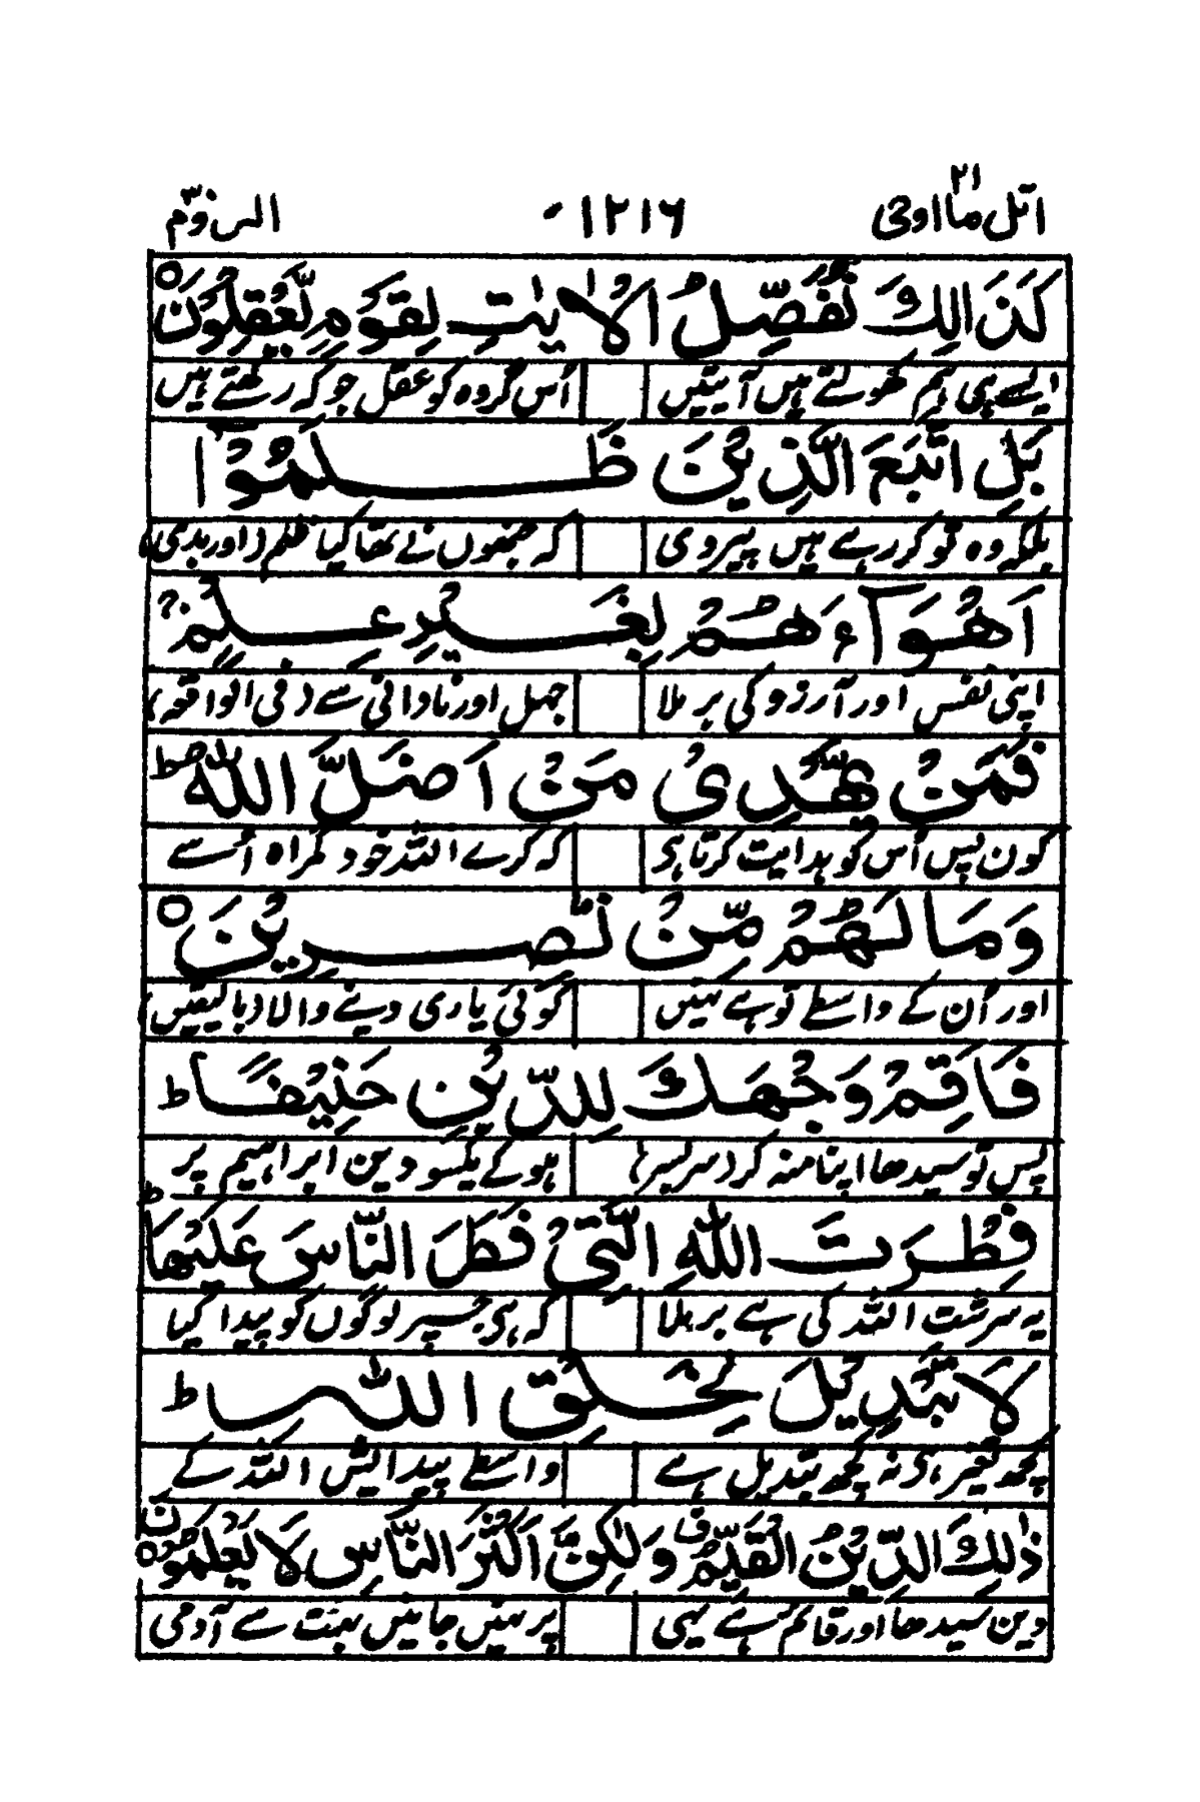 اتل ما اوحی ۲۱ ۱۲۱۶ الروم ۳۰
كَذَالِكَ نُفَصِّلُ الْاٰيٰتِ لِقَوْمٍ يَّعْقِلُوْنَ ○
ایسے ہی ہم کھولتے ہیں آیتیں اُس گروہ کو عقل جو کہ رکھتے ہیں
بَلِ اتَّبَعَ الَّذِيْنَ ظَلَمُوْٓا
بلکہ وہ تو کر رہے ہیں پیروی کہ جنھوں نے تھا کیا ظلم (اور بدی)
اَهْوَآءَهُمْ بِغَيْرِ عِلْمٍ ۚ
اپنی نفس اور آرزو کی برملا جہل اور نادانی سے (فی الواقعہ)
فَمَنْ يَّهْدِىْ مَنْ اَضَلَّ اللّٰهُ ؕ
کون پس اُس کو ہدایت کرتا ہی کہ کرے اللہ خود گمراہ اُسے
وَمَا لَهُمْ مِّنْ نّٰصِرِيْنَ ○
اور اُن کے واسطے تو ہے نہیں کوئی یاری دینے والا (بالیقیں)
فَاَقِمْ وَجْهَكَ لِلدِّيْنِ حَنِيْفًا ؕ
پس تو سیدھا اپنا منہ کر (سربسر) ہو کے یکسو دین ابراہیم پر
فِطْرَتَ اللّٰهِ الَّتِىْ فَطَرَ النَّاسَ عَلَيْهَا ؕ
یہ سرشت اللہ کی ہے برملا کہ ہی جسپر لوگوں کو پیدا کیا
لَا تَبْدِيْلَ لِخَلْقِ اللّٰهِ ؕ
کچھ تغیر ہی نہ کچھ تبدیل ہے واسطے پیدائش اللہ کے
ذٰلِكَ الدِّيْنُ الْقَيِّمُ ۙ وَلٰكِنَّ اَكْثَرَ النَّاسِ لَا يَعْلَمُوْنَ ○
دین سیدھا اور قائم ہے یہی پر نہیں جانیں بہت سے آدمی